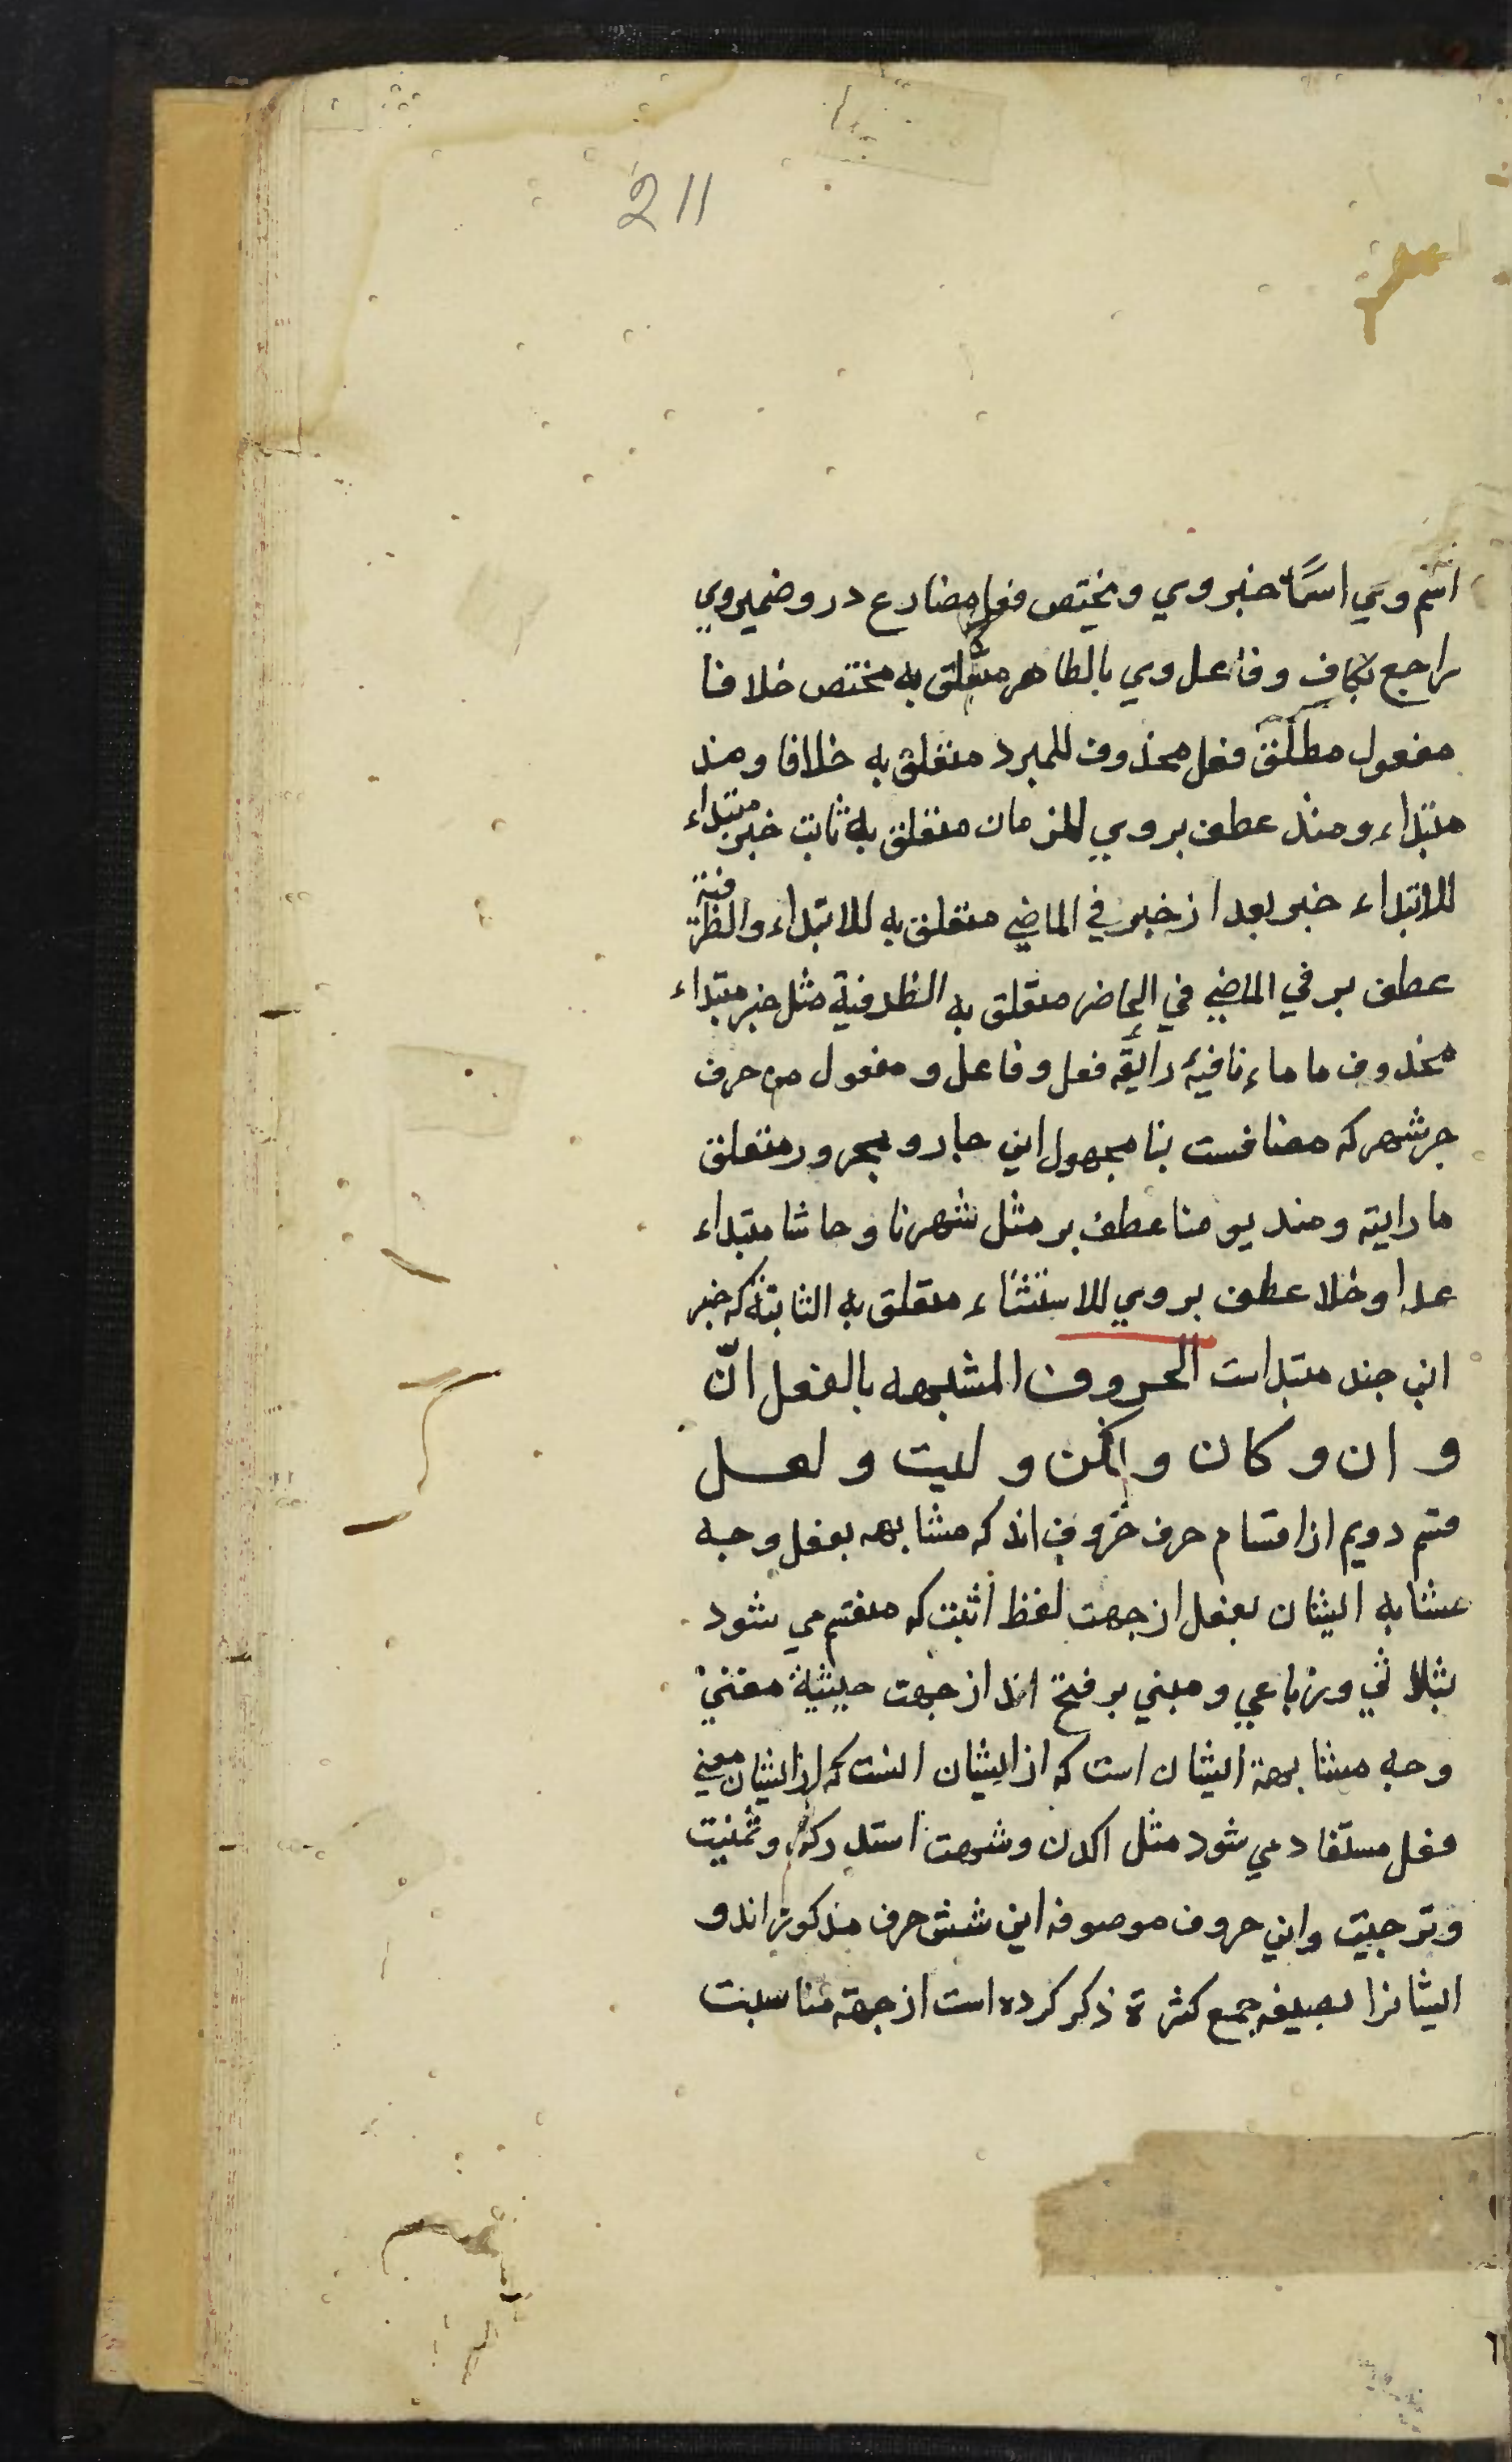 211
اسم وي اسمًا خبر وي ويختص فعل مضارع درو ضمير وي
راجع بكاف وفاعل وي بالظاهر متعلق به مختص خلافا
مفعول مطلق فعل محذوف للمبرد متعلق به خلافا ومذ
مبتداء ومنذ عطف بر وي للزمان متعلق به ثابت خبر مبتداء
للابتداء خبر بعد از خبر في الماضي متعلق به للابتداء والظرفية
عطف بر في الماضي في الحاضر متعلق به الظرفية مثل خبر مبتداء
محذوف ما ماء نافية رايته فعل وفاعل و مفعول مذ حرف
جر شهر كه مضافست بنا مجهول اين جار و مجرور متعلق
ما رايته ومنذ يومنا عطف بر مثل شهرنا و حاشا مبتداء
عدا وخلا عطف بر وي للاستثناء متعلق به الثابتة كه خبر
اين چند مبتداست الحروف المشبهه بالفعل انّ
و ان و كان و لكن و ليت و لعل
قسم دويم از اقسام حرف حروف اند كه مشابهه بفعل وجه
مشابه ايشان بفعل از جهت لفظ انست كه منقسم مي شود
بثلاثي ورباعي و مبني بر فتح اند از جهت حيثية معني
وجه مشابهة ايشان است كه از ايشان انست كه از ايشان معني
فعل مستفاد مي شود مثل اكدن وشبهت استدركت وتمنيت
وترجيت واين حروف موصوفه اين شش حرف مذكور اند و
ايشانرا بصيغه جمع كثرة ذكر كرده است از جهة مناسبت